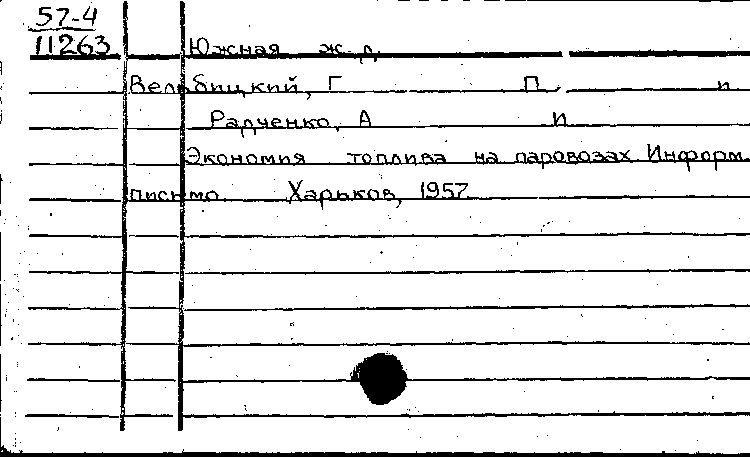 57-4
11263 Южная ж. д.
Вельбицкий, Г П. и
Радченко, А И
Экономия топлива на паровозах Информ.
письмо. Харьков, 1957